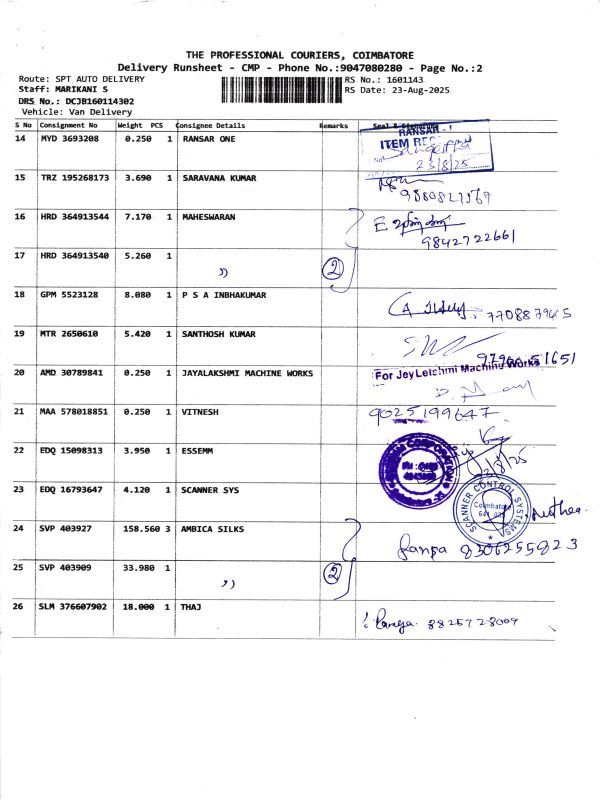 THE PROFESSIONAL COURIERS, COIMBATORE
Delivery Runsheet - CMP - Phone No.:9047080280 - Page No.:2
Route: SPT AUTO DELIVERY
RS No.: 1601143
Staff: MARIKANI S
RS Date: 23-Aug-2025
DRS No.: DCJB160114302
Vehicle: Van Delivery
S No Consignment No Weight PCS Consignee Details Remarks Seal & Signature
14 MVD 3693208 0.250 1 RANSAR ONE
RANSAR - 1
ITEM
No Sangeetha
23/8/25
15 TRZ 195268173 3.690 1 SARAVANA KUMAR
16 HRD 364913544 7.170 1 MAHESWARAN
9842722661
17 HRD 364913540 5.260 1
" 2
18 GPM 5523128 8.080 1 P S A INBHAKUMAR
19 MTR 2650610 5.420 1 SANTHOSH KUMAR
20 AMD 30789841 0.250 1 JAYALAKSHMI MACHINE WORKS
For JeyLetchmi Machine Works
21 MAA 578018851 0.250 1 VITNESH 9025199647
22 EDQ 15098313 3.950 1 ESSEMM
23 EDQ 16793647 4.120 1 SCANNER SYS
SCANNER CONTROL SYSTEMS
Coimbatore
24 SVP 403927 158.560 3 AMBICA SILKS
8306255823
25 SVP 403909 33.980 1
" 2
26 SLM 376607902 18.000 1 THAJ
8825728009